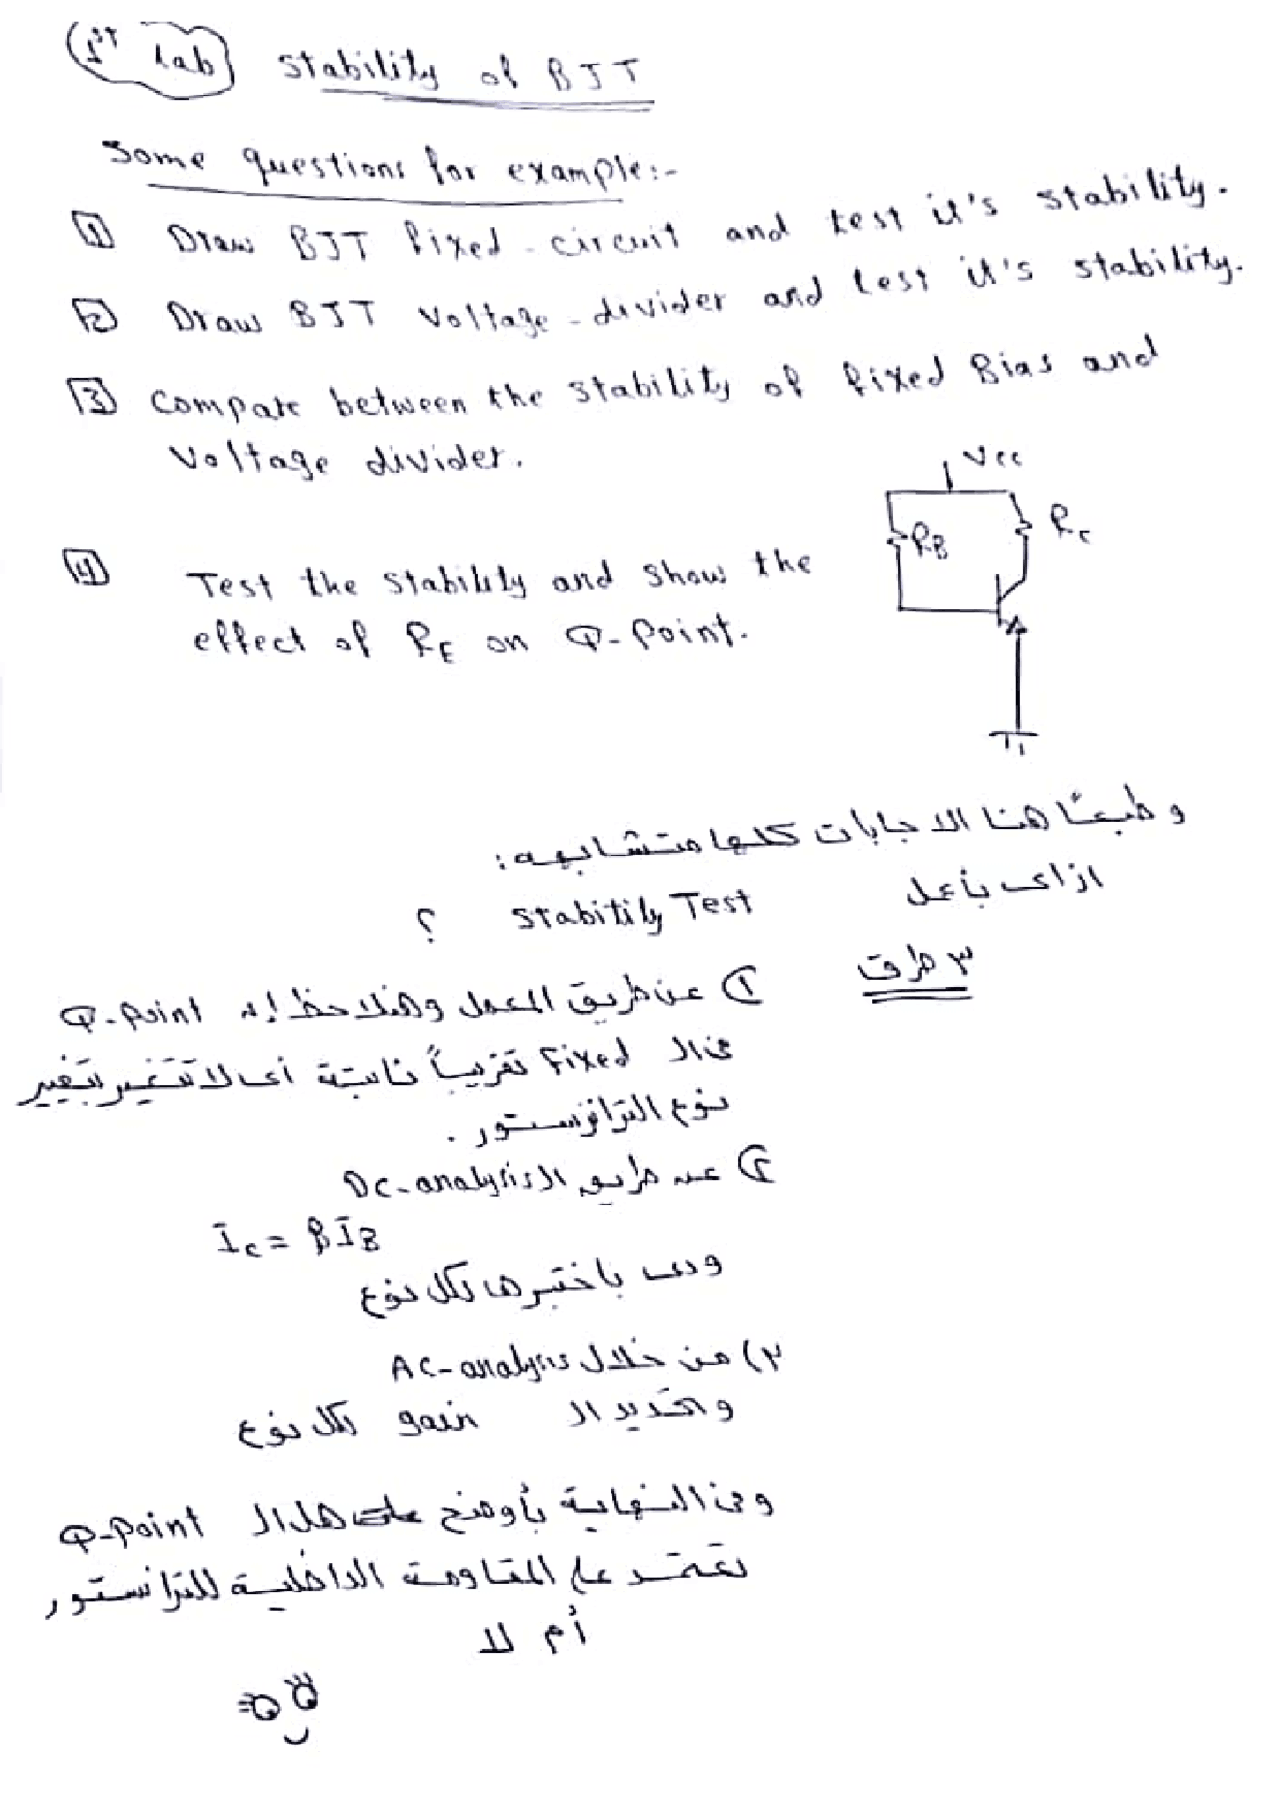 1st Lab Stability of BJT
Some questions for example:-
1 Draw BJT fixed-circuit and test it's stability.
2 Draw BJT voltage-divider and test it's stability.
3 Compare between the stability of fixed Bias and
voltage divider.
Vcc
RB
Rc
4 Test the stability and show the
effect of RE on Q-Point.
و طبعًا هنا الاجابات كلها متشابهه :
ازاى بأعمل Stabitily Test ؟
٣ طرق
① عن طريق المعمل وهنلاحظ إن Q-Point
فى الـ Fixed تقريباً ثابتة أى لا تتغير بتغير
نوع الترانزستور .
② عن طريق الـ DC-analysis
Ic = βIB
ودى باختبرها لكل نوع
٣) من خلال AC-analysis
وتحديد الـ gain لكل نوع
وفى النهاية بأوضح هل الـ Q-Point
تعتمد على المقاومة الداخلية للترانستور
أم لا